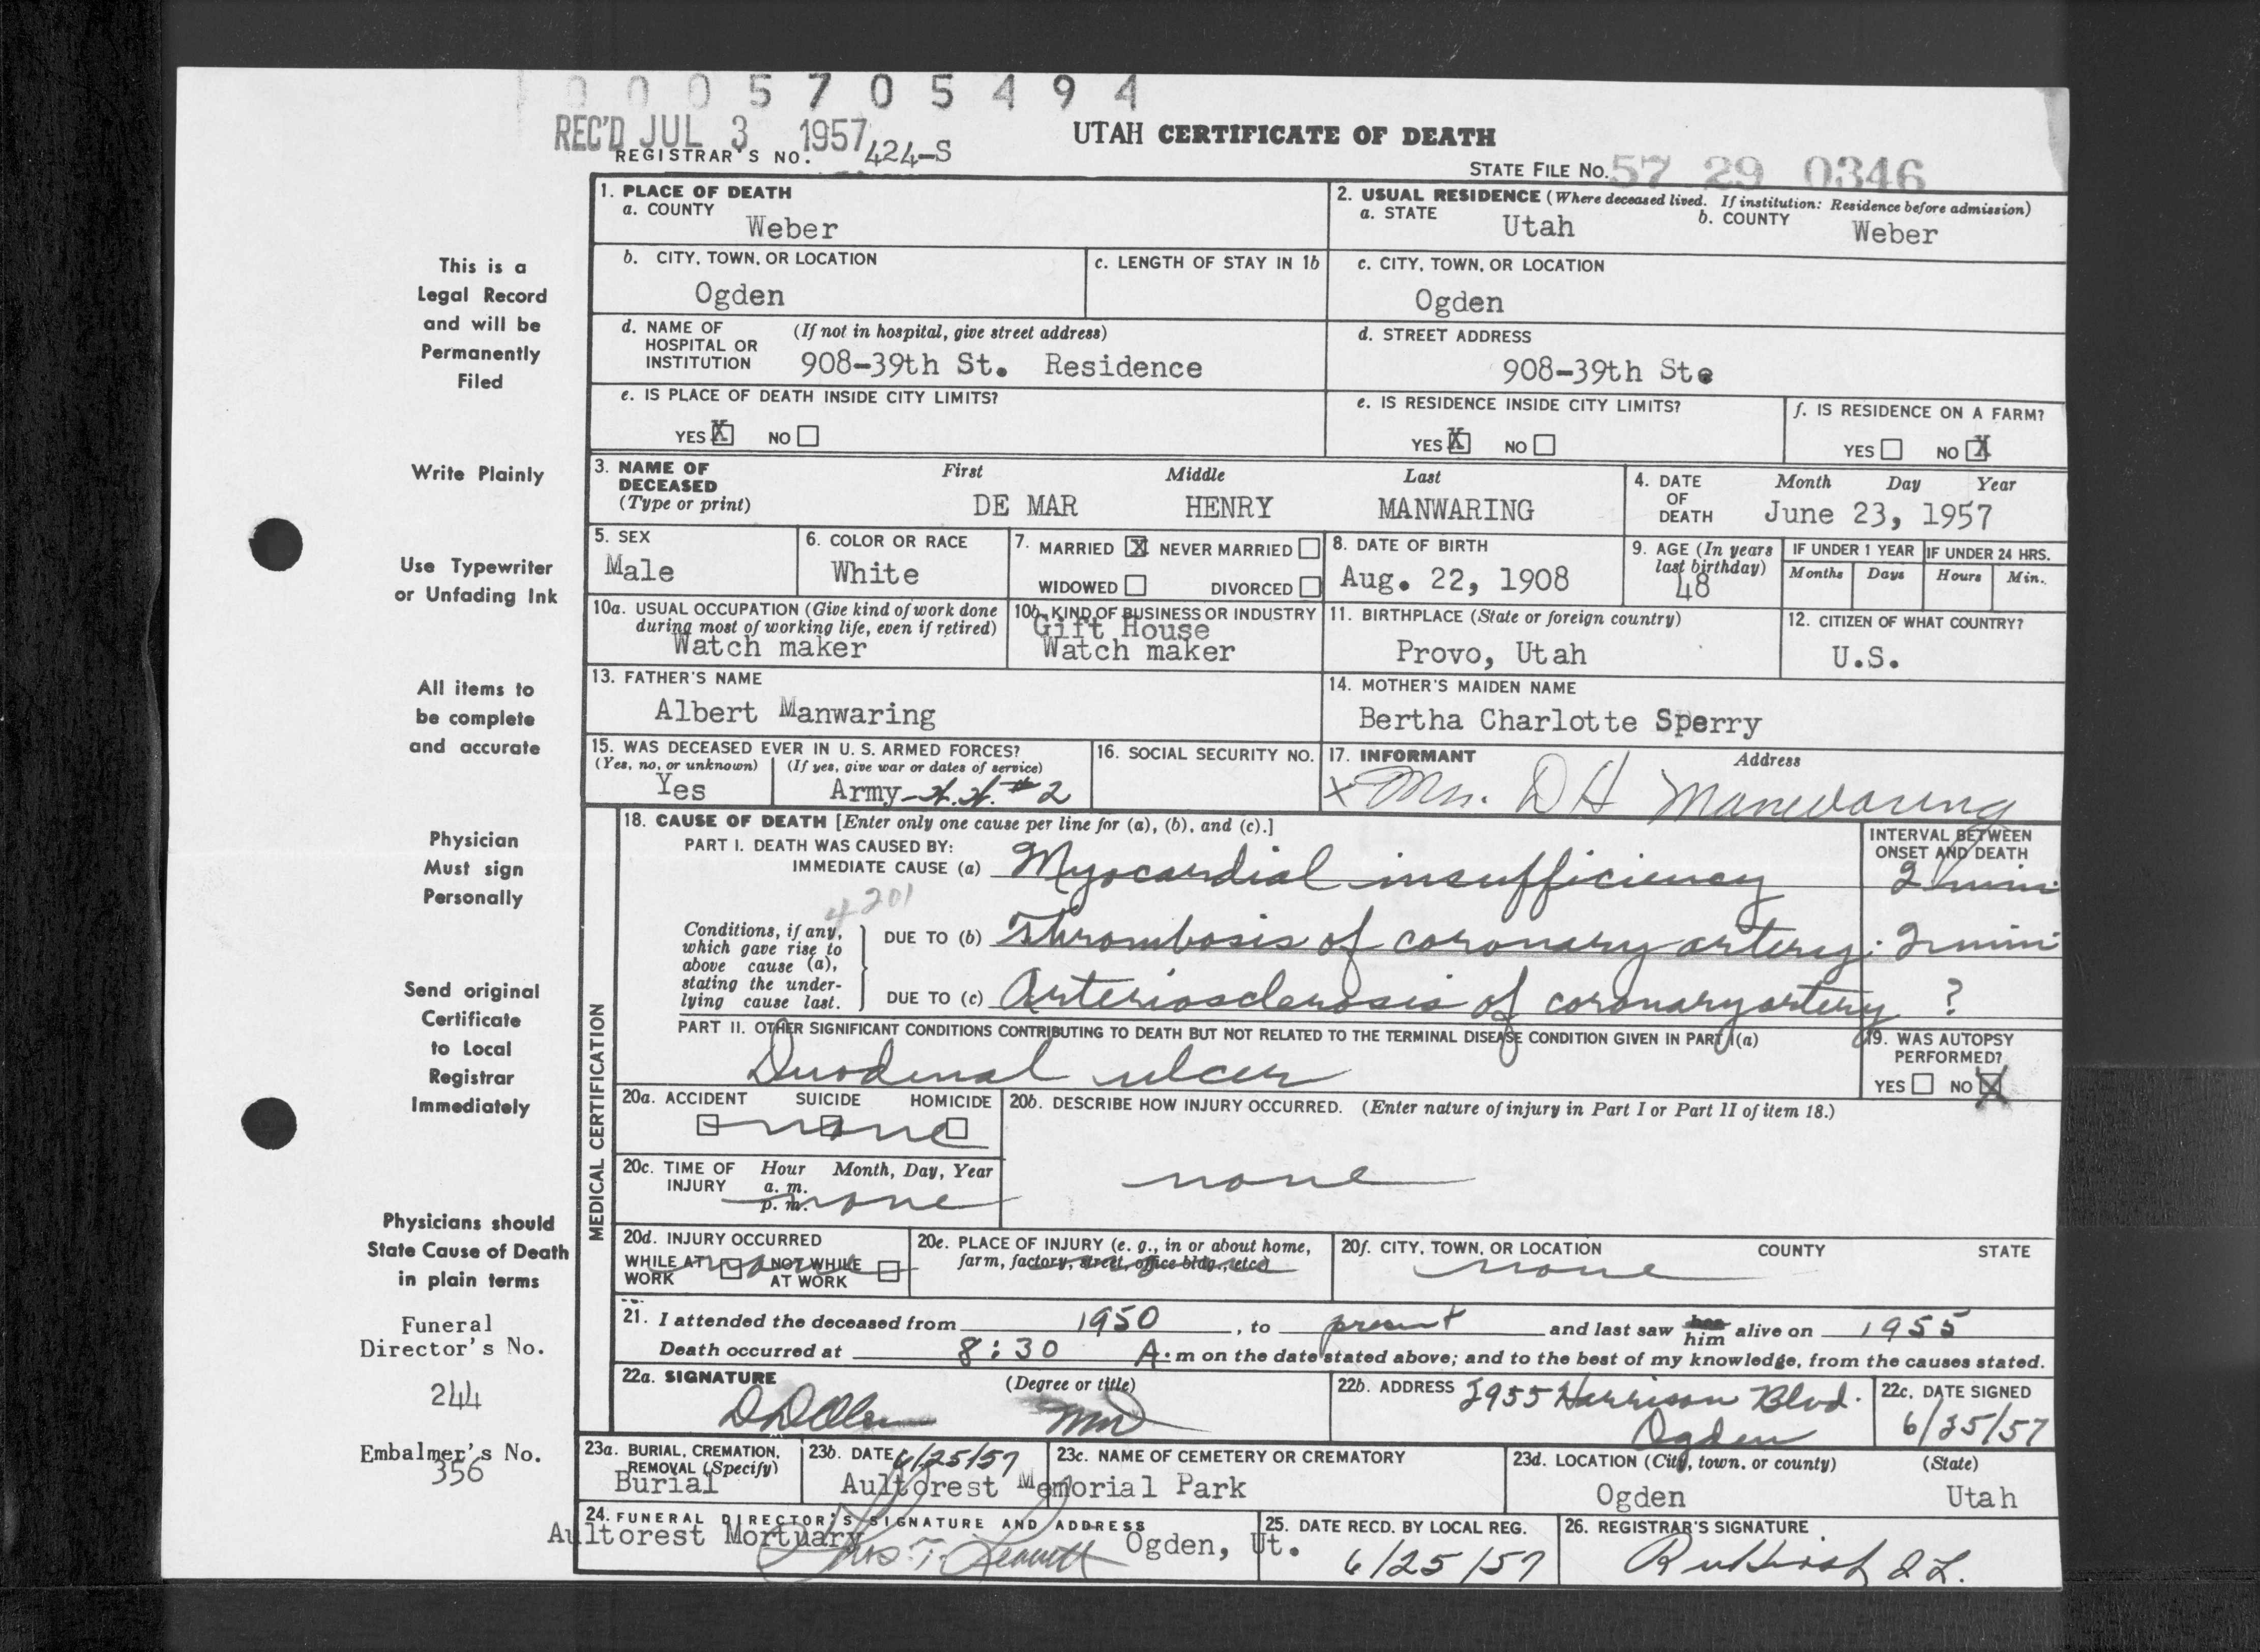 0005705494
REC'D JUL 3 1957
REGISTRAR'S NO. 424-S
UTAH CERTIFICATE OF DEATH
STATE FILE NO. 57 29 0346
This is a
Legal Record
and will be
Permanently
Filed
Write Plainly
Use Typewriter
or Unfading Ink
All items to
be complete
and accurate
Physician
Must sign
Personally
Send original
Certificate
to Local
Registrar
Immediately
Physicians should
State Cause of Death
in plain terms
Funeral
Director's No.
244
Embalmer's No.
356
1. PLACE OF DEATH
a. COUNTY
Weber
2. USUAL RESIDENCE (Where deceased lived. If institution: Residence before admission)
a. STATE Utah b. COUNTY Weber
b. CITY, TOWN, OR LOCATION
Ogden
c. LENGTH OF STAY IN 1b
c. CITY, TOWN, OR LOCATION
Ogden
d. NAME OF HOSPITAL OR INSTITUTION (If not in hospital, give street address)
908-39th St. Residence
d. STREET ADDRESS
908-39th Ste
e. IS PLACE OF DEATH INSIDE CITY LIMITS?
YES X NO
e. IS RESIDENCE INSIDE CITY LIMITS?
YES X NO
f. IS RESIDENCE ON A FARM?
YES NO X
3. NAME OF DECEASED (Type or print)
First Middle Last
DE MAR HENRY MANWARING
4. DATE OF DEATH Month Day Year
June 23, 1957
5. SEX
Male
6. COLOR OR RACE
White
7. MARRIED X NEVER MARRIED
WIDOWED DIVORCED
8. DATE OF BIRTH
Aug. 22, 1908
9. AGE (In years last birthday)
48
IF UNDER 1 YEAR IF UNDER 24 HRS.
Months Days Hours Min.
10a. USUAL OCCUPATION (Give kind of work done during most of working life, even if retired)
Watch maker
10b. KIND OF BUSINESS OR INDUSTRY
Gift House
Watch maker
11. BIRTHPLACE (State or foreign country)
Provo, Utah
12. CITIZEN OF WHAT COUNTRY?
U.S.
13. FATHER'S NAME
Albert Manwaring
14. MOTHER'S MAIDEN NAME
Bertha Charlotte Sperry
15. WAS DECEASED EVER IN U. S. ARMED FORCES?
(Yes, no, or unknown) (If yes, give war or dates of service)
Yes Army-W.W. #2
16. SOCIAL SECURITY NO.
17. INFORMANT Address
X Mrs. D H Manwaring
MEDICAL CERTIFICATION
18. CAUSE OF DEATH [Enter only one cause per line for (a), (b), and (c).]
PART I. DEATH WAS CAUSED BY:
IMMEDIATE CAUSE (a) Myocardial insufficiency
INTERVAL BETWEEN ONSET AND DEATH
2 min
4201
Conditions, if any, which gave rise to above cause (a), stating the underlying cause last.
DUE TO (b) Thrombosis of coronary artery. 2 min
DUE TO (c) Arteriosclerosis of coronary artery ?
PART II. OTHER SIGNIFICANT CONDITIONS CONTRIBUTING TO DEATH BUT NOT RELATED TO THE TERMINAL DISEASE CONDITION GIVEN IN PART I(a)
Duodenal ulcer
19. WAS AUTOPSY PERFORMED?
YES NO X
20a. ACCIDENT SUICIDE HOMICIDE
none
20b. DESCRIBE HOW INJURY OCCURRED. (Enter nature of injury in Part I or Part II of item 18.)
none
20c. TIME OF INJURY Hour Month, Day, Year
a. m.
p. m.
none
20d. INJURY OCCURRED
WHILE AT WORK NOT WHILE AT WORK
none
20e. PLACE OF INJURY (e. g., in or about home, farm, factory, street, office bldg., etc.)
20f. CITY, TOWN, OR LOCATION COUNTY STATE
none
21. I attended the deceased from 1950, to present and last saw her him alive on 1955
Death occurred at 8:30 A. m on the date stated above; and to the best of my knowledge, from the causes stated.
22a. SIGNATURE (Degree or title)
D D Olsen MD
22b. ADDRESS 3955 Harrison Blvd.
Ogden
22c. DATE SIGNED
6/25/57
23a. BURIAL, CREMATION, REMOVAL (Specify)
Burial
23b. DATE 6/25/57
23c. NAME OF CEMETERY OR CREMATORY
Aultorest Memorial Park
23d. LOCATION (City, town, or county) (State)
Ogden Utah
24. FUNERAL DIRECTOR'S SIGNATURE AND ADDRESS
Aultorest Mortuary Ogden, Ut.
25. DATE RECD. BY LOCAL REG.
6/25/57
26. REGISTRAR'S SIGNATURE